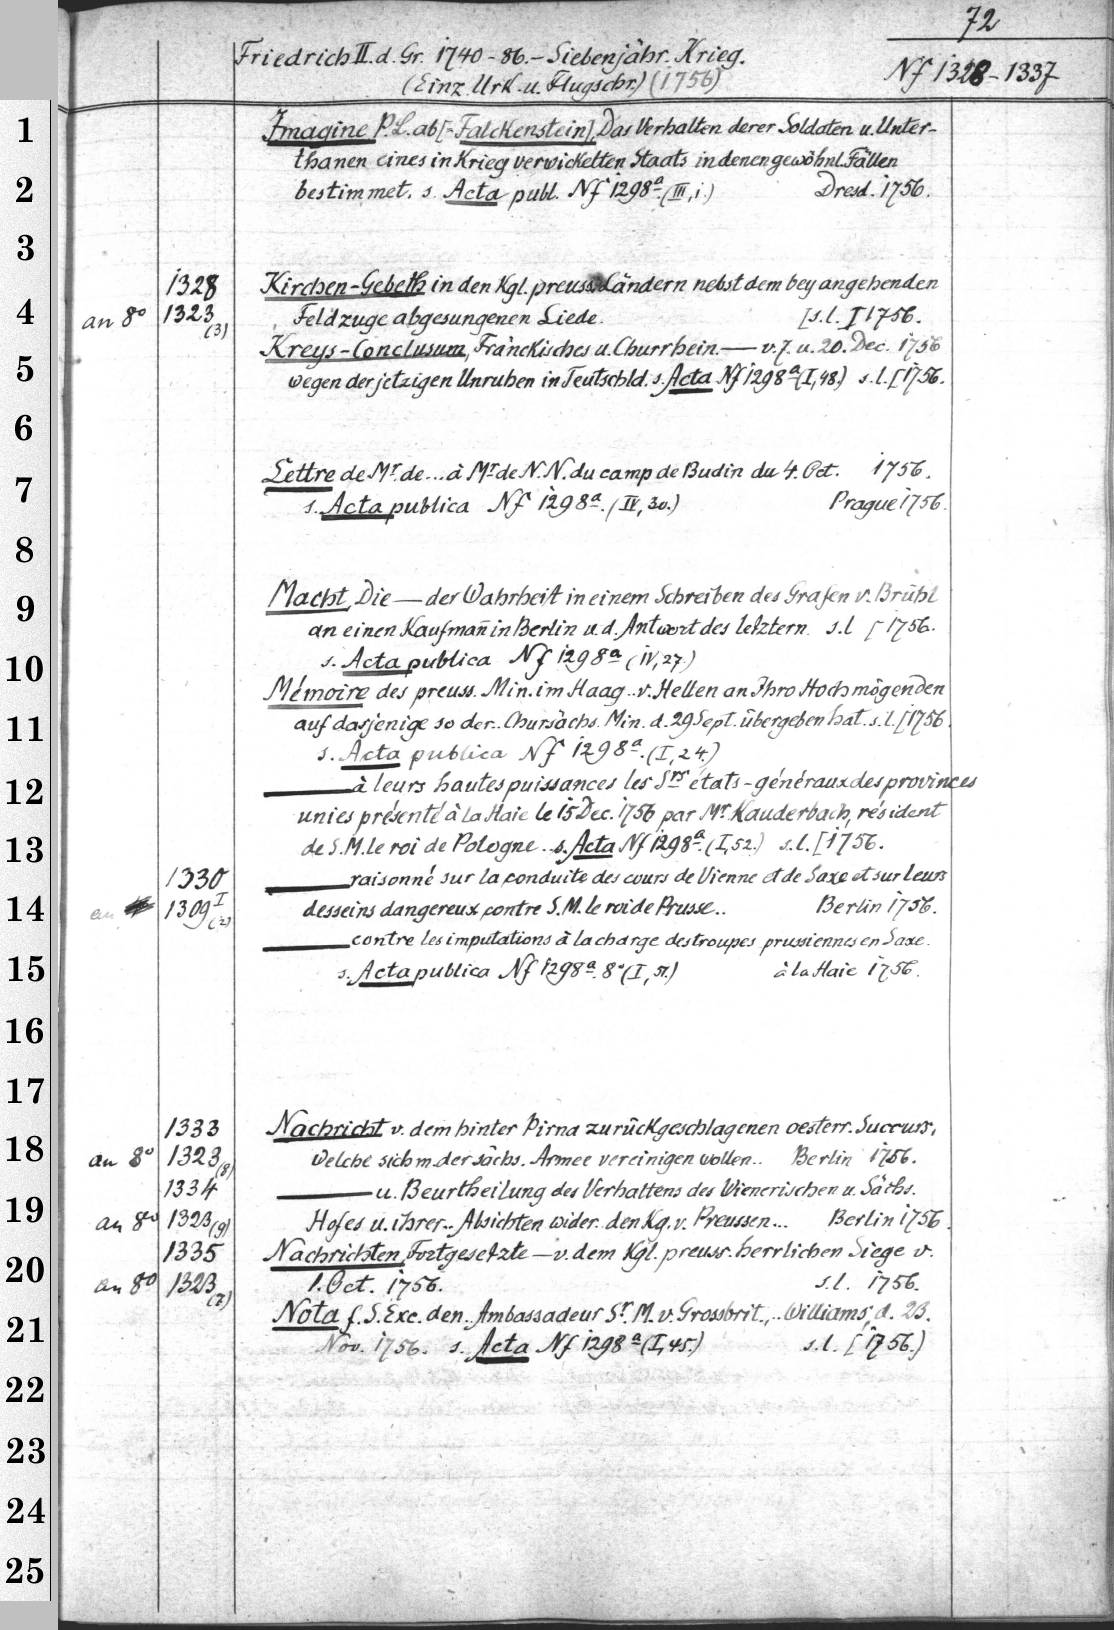 72
Friedrich II. d. Gr. 1740-86. - Siebenjähr. Krieg.
(Einz. Urk. u. Flugschr.) (1756)
Nf 1328-1337
1
Imagine P. L. ab [= Falckenstein], Das Verhalten derer Soldaten u. Unter-
thanen eines in Krieg verwickelten Staats in denen gewöhnl. Fällen
2
bestimmet. s. Acta publ. Nf 1298a. (III, 1.) Dresd. 1756.
3
1328 Kirchen-Gebeth in den Kgl. preuss. Ländern nebst dem bey angehenden
4
an 8o 1323 (3) Feldzuge abgesungenen Liede. [s. l. I 1756.
Kreys-Conclusum, Fränckisches u. Churrhein. — v. 7. u. 20. Dec. 1756
5
wegen der jetzigen Unruhen in Teutschld. s. Acta Nf 1298a (I, 48.) s. l. [1756.
6
Lettre de Mr. de ... à Mr de N. N. du camp de Budin du 4. Oct. 1756.
7
s. Acta publica Nf 1298a. (IV, 30.) Prague 1756.
8
Macht, Die — der Wahrheit in einem Schreiben des Grafen v. Brühl
9
an einen Kaufman̄ in Berlin u. d. Antwort des letztern. s. l [1756.
10
s. Acta publica Nf 1298a (IV, 27.)
Mémoire des preuss. Min. im Haag .. v. Hellen an Ihro Hochmögenden
11
auf dasjenige so der .. Chursächs. Min. d. 29 Sept. übergeben hat. s. l. [1756.
s. Acta publica Nf 1298a. (I, 24.)
12
— à leurs hautes puissances les Srs états-généraux des provinces
unies présenté à la Haie le 15 Dec. 1756 par Mr. Kauderbach, résident
13
de S. M. le roi de Pologne .. s. Acta Nf 1298a. (I, 52.) s. l. [1756.
1330 — raisonné sur la conduite des cours de Vienne et de Saxe et sur leurs
14
an 1309 I (2) desseins dangereux contre S. M. le roi de Prusse .. Berlin 1756.
— contre les imputations à la charge des troupes prussiennes en Saxe.
15
s. Acta publica Nf 1298a. 8o (I, 51.) à la Haie 1756.
16
17
1333 Nachricht v. dem hinter Pirna zurückgeschlagenen oesterr. Succurs,
18
an 8o 1323 (8) welche sich m. der sächs. Armee vereinigen wollen .. Berlin 1756.
1334 — u. Beurtheilung des Verhaltens des Wienerischen u. Sächs.
19
an 8o 1323 (9) Hofes u. ihrer .. Absichten wider den Kg. v. Preussen ... Berlin 1756.
1335 Nachrichten, Fortgesetzte — v. dem Kgl. preuss. herrlichen Siege v.
20
an 8o 1323 (7) 1. Oct. 1756. s. l. 1756.
Nota f. S. Exc. den .. Ambassadeur Sr. M. v. Grossbrit., .. Williams, d. 23.
21
Nov. 1756. s. Acta Nf 1298a (I, 45.) s. l. [1756.)
22
23
24
25